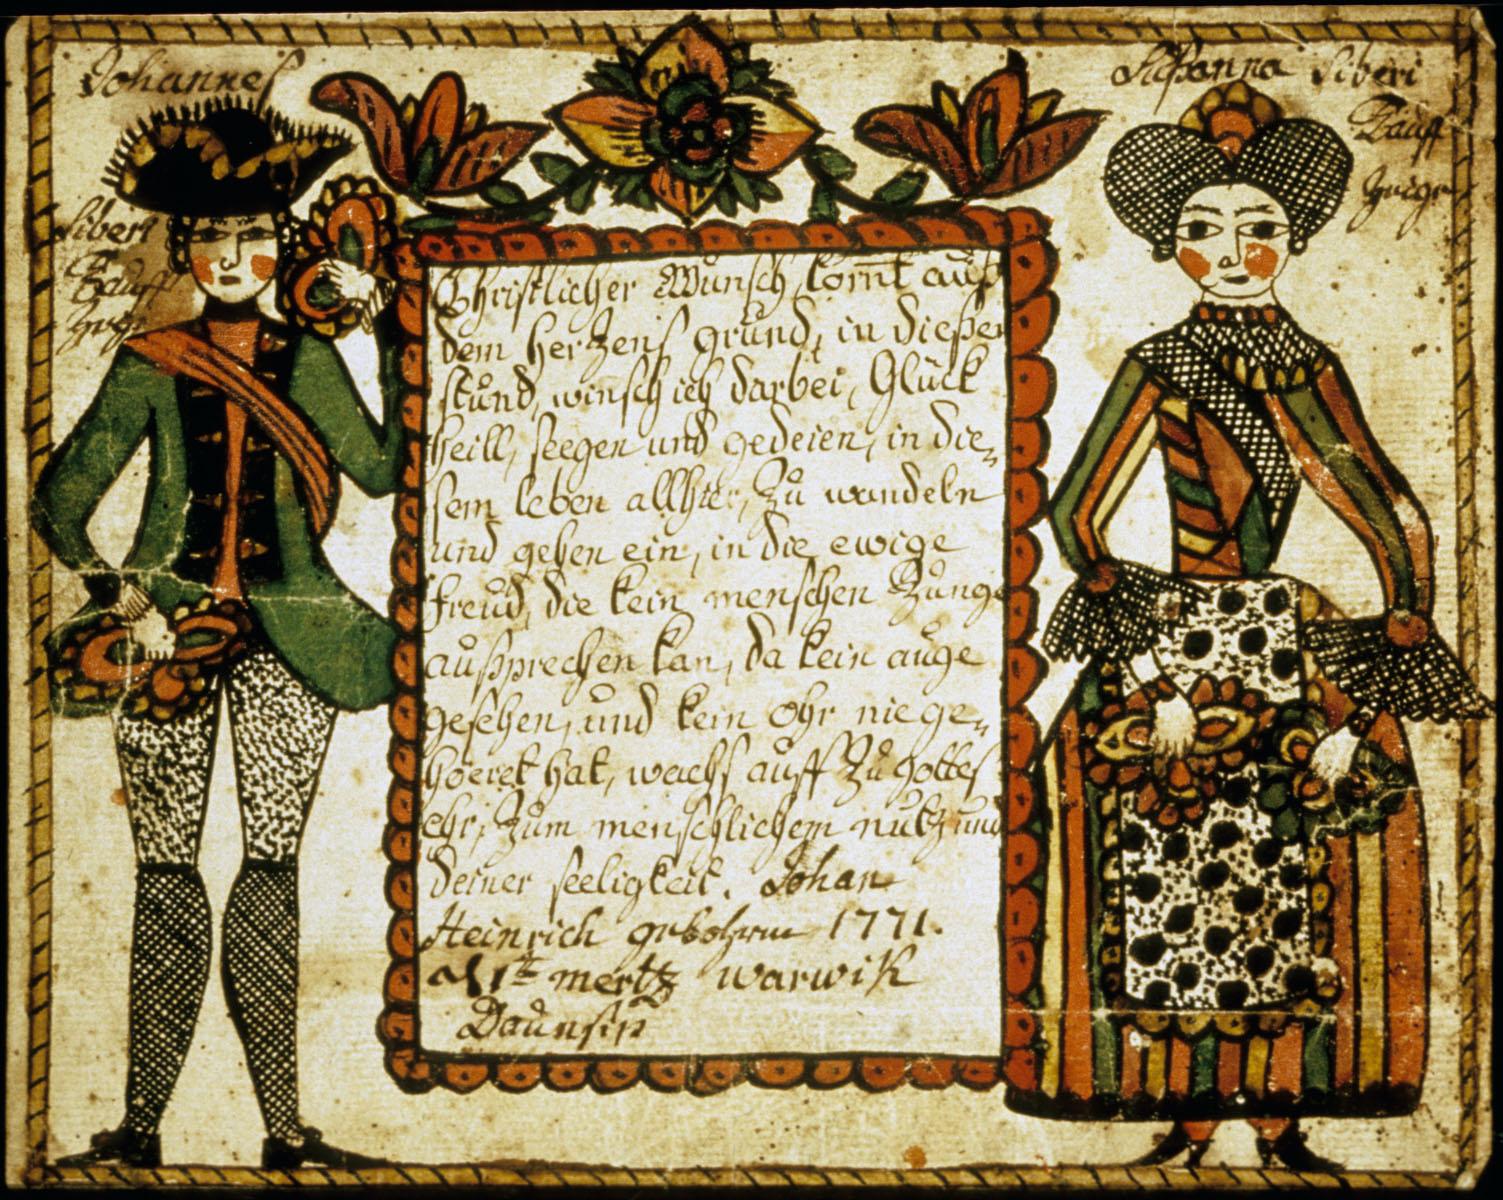 Johannes
Siberi
Tauff
Zeuge
Susanna Siberi
Tauff
Zeuge
Christlicher Wunsch, kom̄t auß
dem herzens grund, in dießer
stund, winsch ich darbei, Glück
heill, seegen und gedeien, in die=
sem leben allhier, zu wandeln
und gehen ein, in die ewige
freud, die kein menschen Zunge
außsprechen kan, da kein auge
gesehen, und kein ohr nie ge=
höeret hat, wachs auff zu gottes
ehr, zum menschlichem nutz und
deiner seeligkeit. Johan
Heinrich gebohren 1771.
mertz warwik
Daunsip